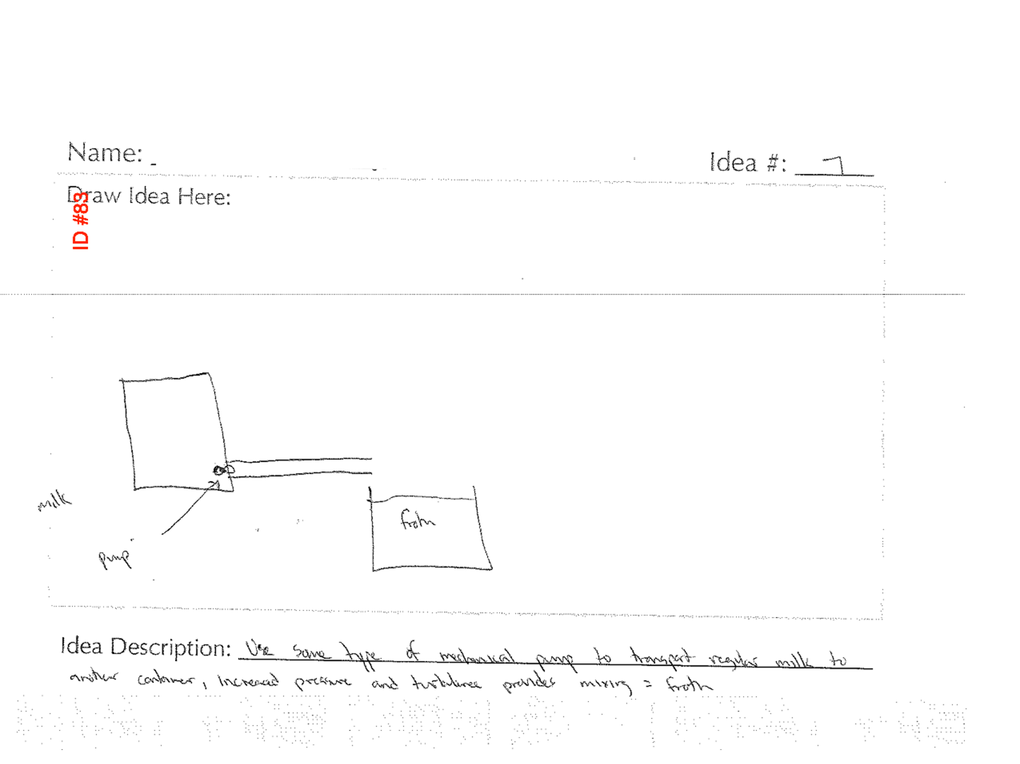 Name:
Idea #: 7
Draw Idea Here:
ID #83
milk
pump
froth
Idea Description: Use some type of mechanical pump to transport regular milk to
another container, increased pressure and turbulence provides mixing = froth